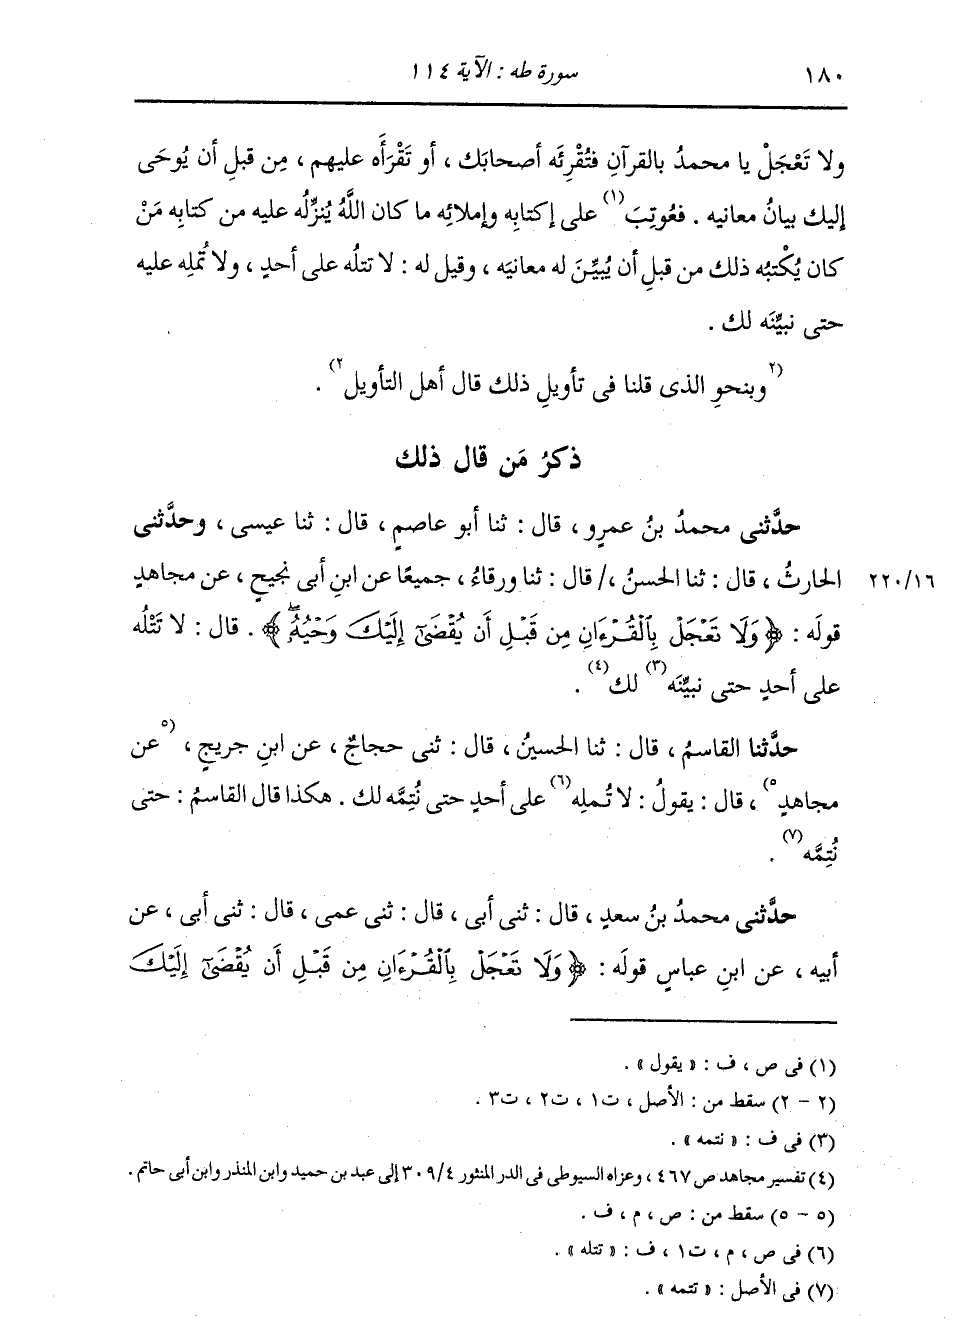 ١٨٠ سورة طه : الآية ١١٤
ولا تَعْجَلْ يا محمدُ بالقرآنِ فتُقْرِئَه أصحابَك ، أو تَقْرَأَه عليهم ، مِن قبلِ أن يُوحَى
إليك بيانُ معانيه . فعُوتِبَ(١) على إكتابِه وإملائِه ما كان اللَّهُ يُنزِّلُه عليه من كتابِه مَنْ
كان يُكْتبُه ذلك من قبلِ أن يُبيِّنَ له معانيَه ، وقيل له : لا تتلُه على أحدٍ ، ولا تُملِه عليه
حتى نبيِّنَه لك .
(٢وبنحوِ الذى قلنا فى تأويلِ ذلك قال أهل التأويل٢) .
ذكرُ مَن قال ذلك
حدَّثنى محمدُ بنُ عمرٍو ، قال : ثنا أبو عاصمٍ ، قال : ثنا عيسى ، وحدَّثنى
٢٢٠/١٦ الحارثُ ، قال : ثنا الحسنُ ،/ قال : ثنا ورقاءُ ، جميعًا عن ابنِ أبى نجيحٍ ، عن مجاهدٍ
قولَه : ﴿ وَلَا تَعْجَلْ بِٱلْقُرْءَانِ مِن قَبْلِ أَن يُقْضَىٰٓ إِلَيْكَ وَحْيُهُۥۖ ﴾ . قال : لا تَتْلُه
على أحدٍ حتى نبيِّنَه(٣) لك(٤) .
حدَّثنا القاسمُ ، قال : ثنا الحسينُ ، قال : ثنى حجاجٌ ، عن ابنِ جريجٍ ، (٥عن
مجاهدٍ٥) ، قال : يقولُ : لا تُملِه(٦) على أحدٍ حتى نُتِمَّه لك . هكذا قال القاسمُ : حتى
نُتِمَّه(٧) .
حدَّثنى محمدُ بنُ سعدٍ ، قال : ثنى أبى ، قال : ثنى عمى ، قال : ثنى أبى ، عن
أبيه ، عن ابنِ عباسٍ قولَه : ﴿ وَلَا تَعْجَلْ بِٱلْقُرْءَانِ مِن قَبْلِ أَن يُقْضَىٰٓ إِلَيْكَ
(١) فى ص ، ف : « يقول » .
(٢ - ٢) سقط من : الأصل ، ت١ ، ت٢ ، ت٣ .
(٣) فى ف : « نتمه » .
(٤) تفسير مجاهد ص ٤٦٧ ، وعزاه السيوطى فى الدر المنثور ٣٠٩/٤ إلى عبد بن حميد وابن المنذر وابن أبى حاتم .
(٥ - ٥) سقط من : ص ، م ، ف .
(٦) فى ص ، م ، ت١ ، ف : « تتله » .
(٧) فى الأصل : « تتمه » .